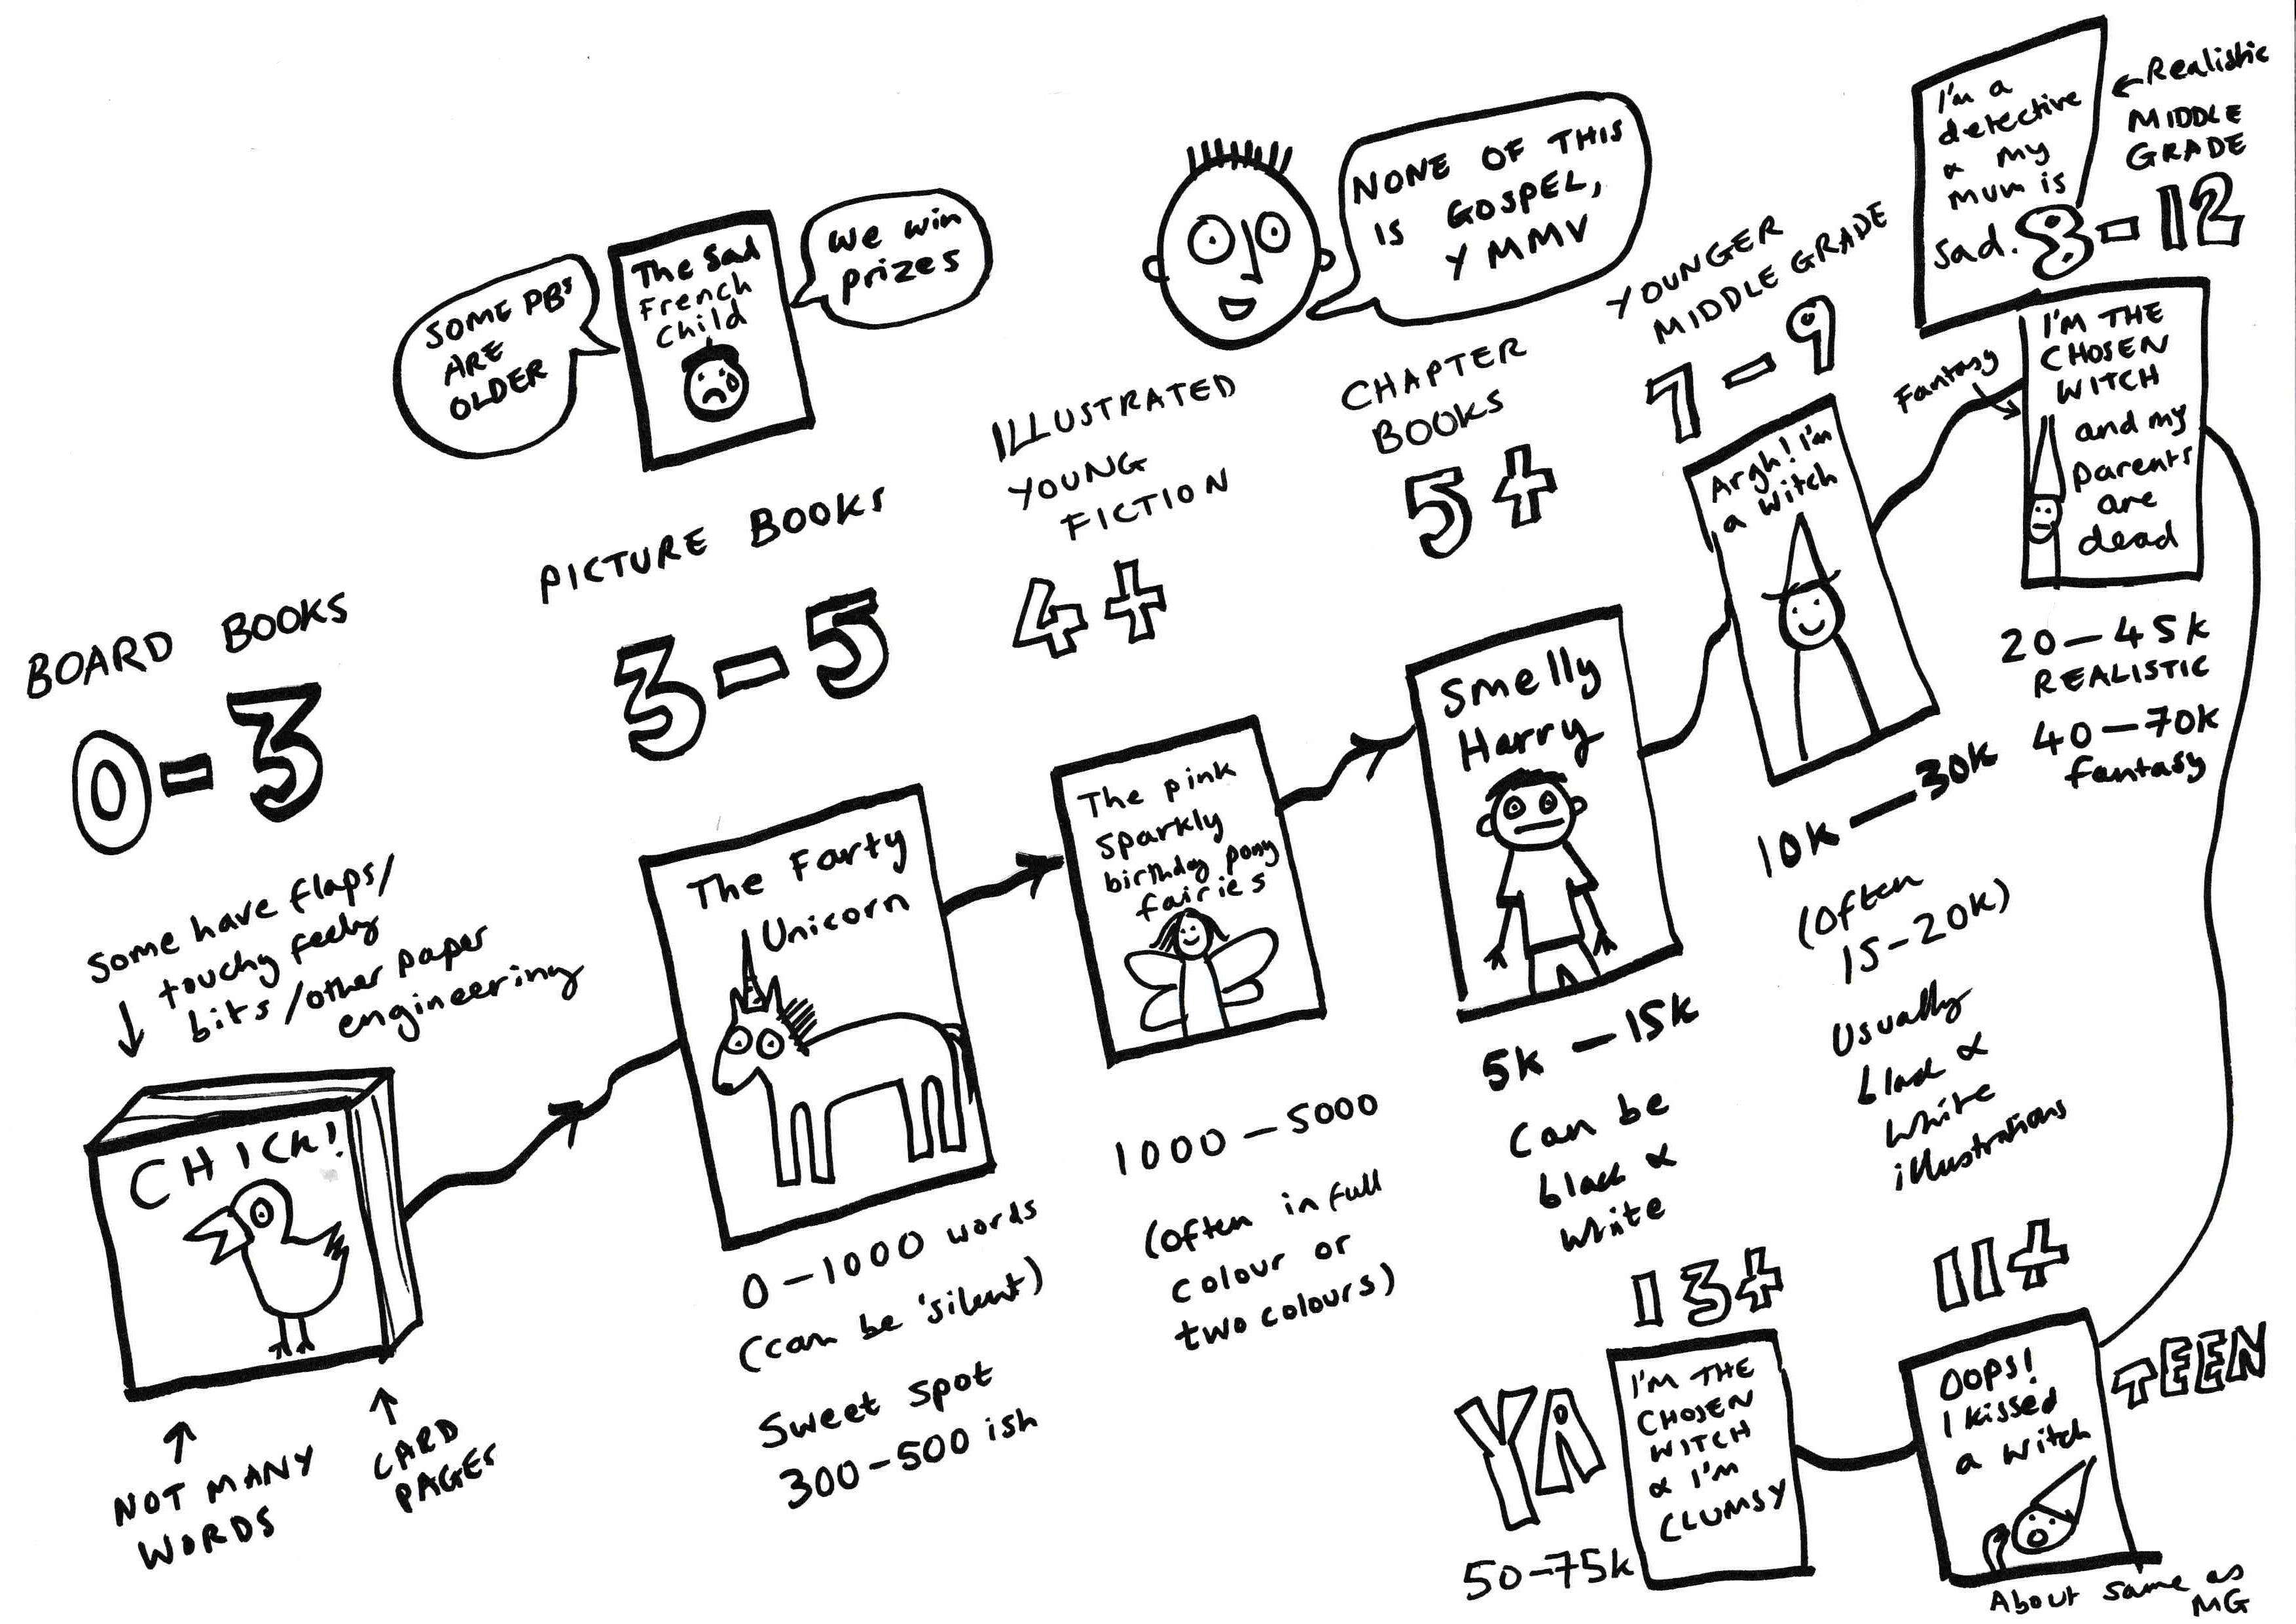 BOARD BOOKS
0-3
Some have flaps/
touchy feely
bits/other paper
engineering
CHICK!
NOT MANY
WORDS
CARD
PAGES
SOME PBs
ARE
OLDER
The Sad
French
Child
We win
prizes
PICTURE BOOKS
3-5
The Farty
Unicorn
0-1000 words
(can be 'silent')
Sweet spot
300-500 ish
ILLUSTRATED
YOUNG
FICTION
4+
The pink
sparkly
birthday pony
fairies
1000-5000
(often in full
colour or
two colours)
NONE OF THIS
IS GOSPEL,
YMMV
CHAPTER
BOOKS
5+
Smelly
Harry
5k-15k
Can be
black &
white
YOUNGER
MIDDLE GRADE
7-9
Argh! I'm
a witch
10k-30k
(often
15-20k)
Usually
black &
white
illustrations
I'm a
detective
& my
mum is
sad.
Realistic
MIDDLE
GRADE
8-12
Fantasy
I'M THE
CHOSEN
WITCH
and my
parents
are
dead
20-45k
REALISTIC
40-70k
fantasy
11+
TEEN
OOPS!
I kissed
a witch
About same as
MG
13+
YA
I'M THE
CHOSEN
WITCH
& I'M
CLUMSY
50-75k